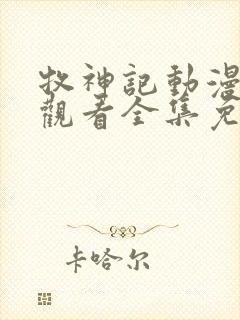 牧神記動漫
觀看全集免
卡哈尔